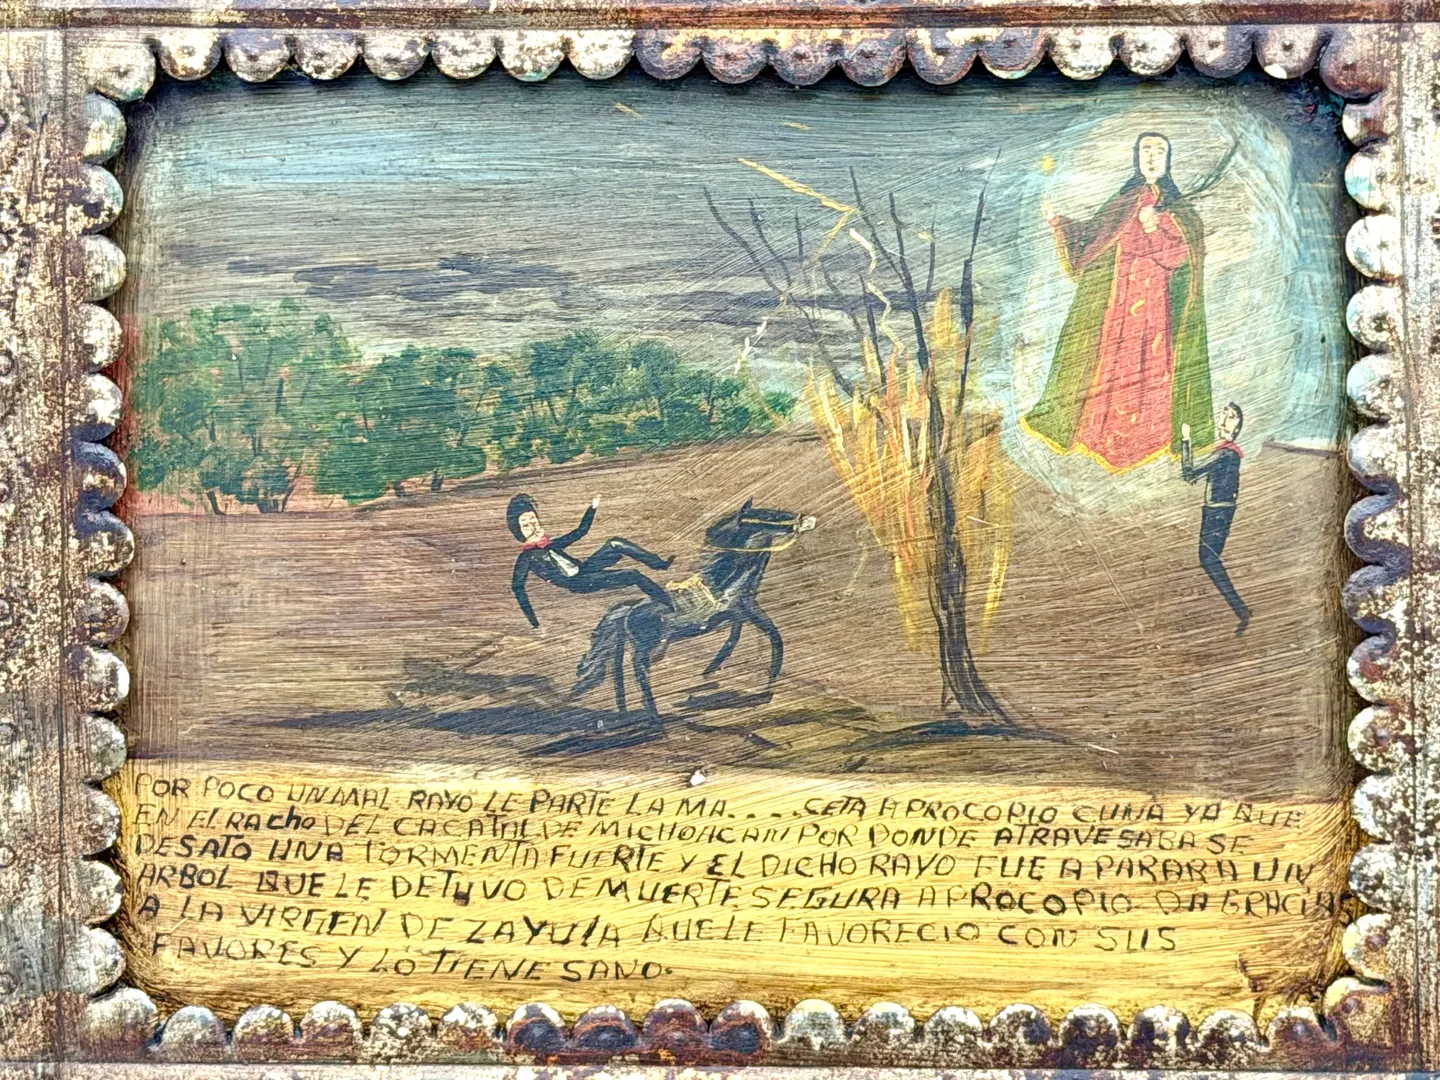 POR POCO UN MAL RAYO LE PARTE LA MA.....CETA A PROCOPIO CUNA YA QUE
EN EL RAcho DEL CACATAL DE MICHOACAN POR DONDE ATRAVESABA SE
DESATO UNA TORMENTA FUERTE Y EL DICHO RAYO FUE A PARAR A UN
ARBOL QUE LE DETUVO DE MUERTE SEGURA A PROCOPIO DA GRACIAS
A LA VIRGEN DE ZAYULA QUE LE FAVORECIO CON SUS
FAVORES Y LO TIENE SANO.